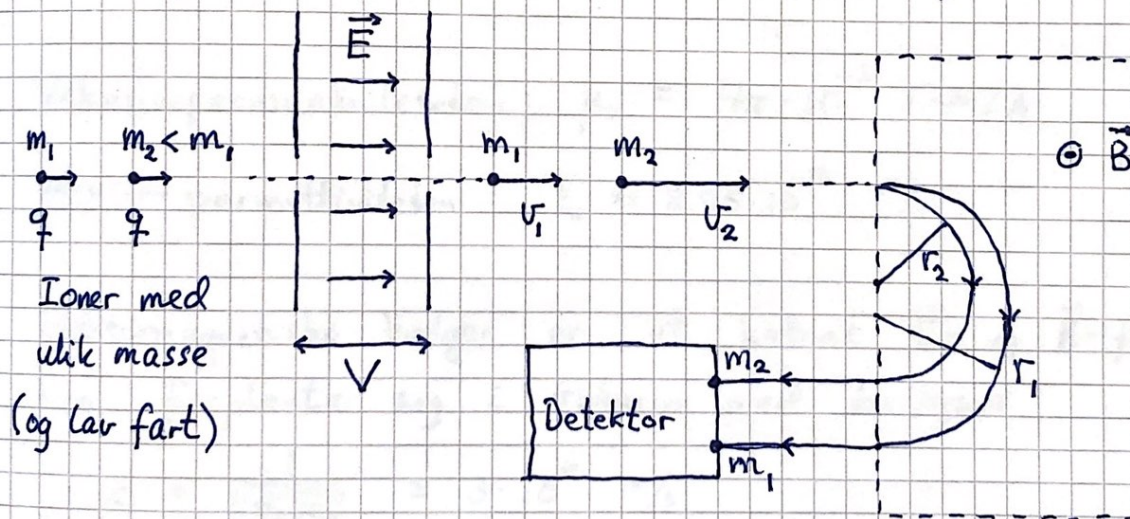 E⃗
m₁ m₂ < m₁
q q
Ioner med
ulik masse
(og lav fart)
V
m₁ m₂
v₁ v₂
⊙ B⃗
r₂
r₁
m₂
Detektor
m₁